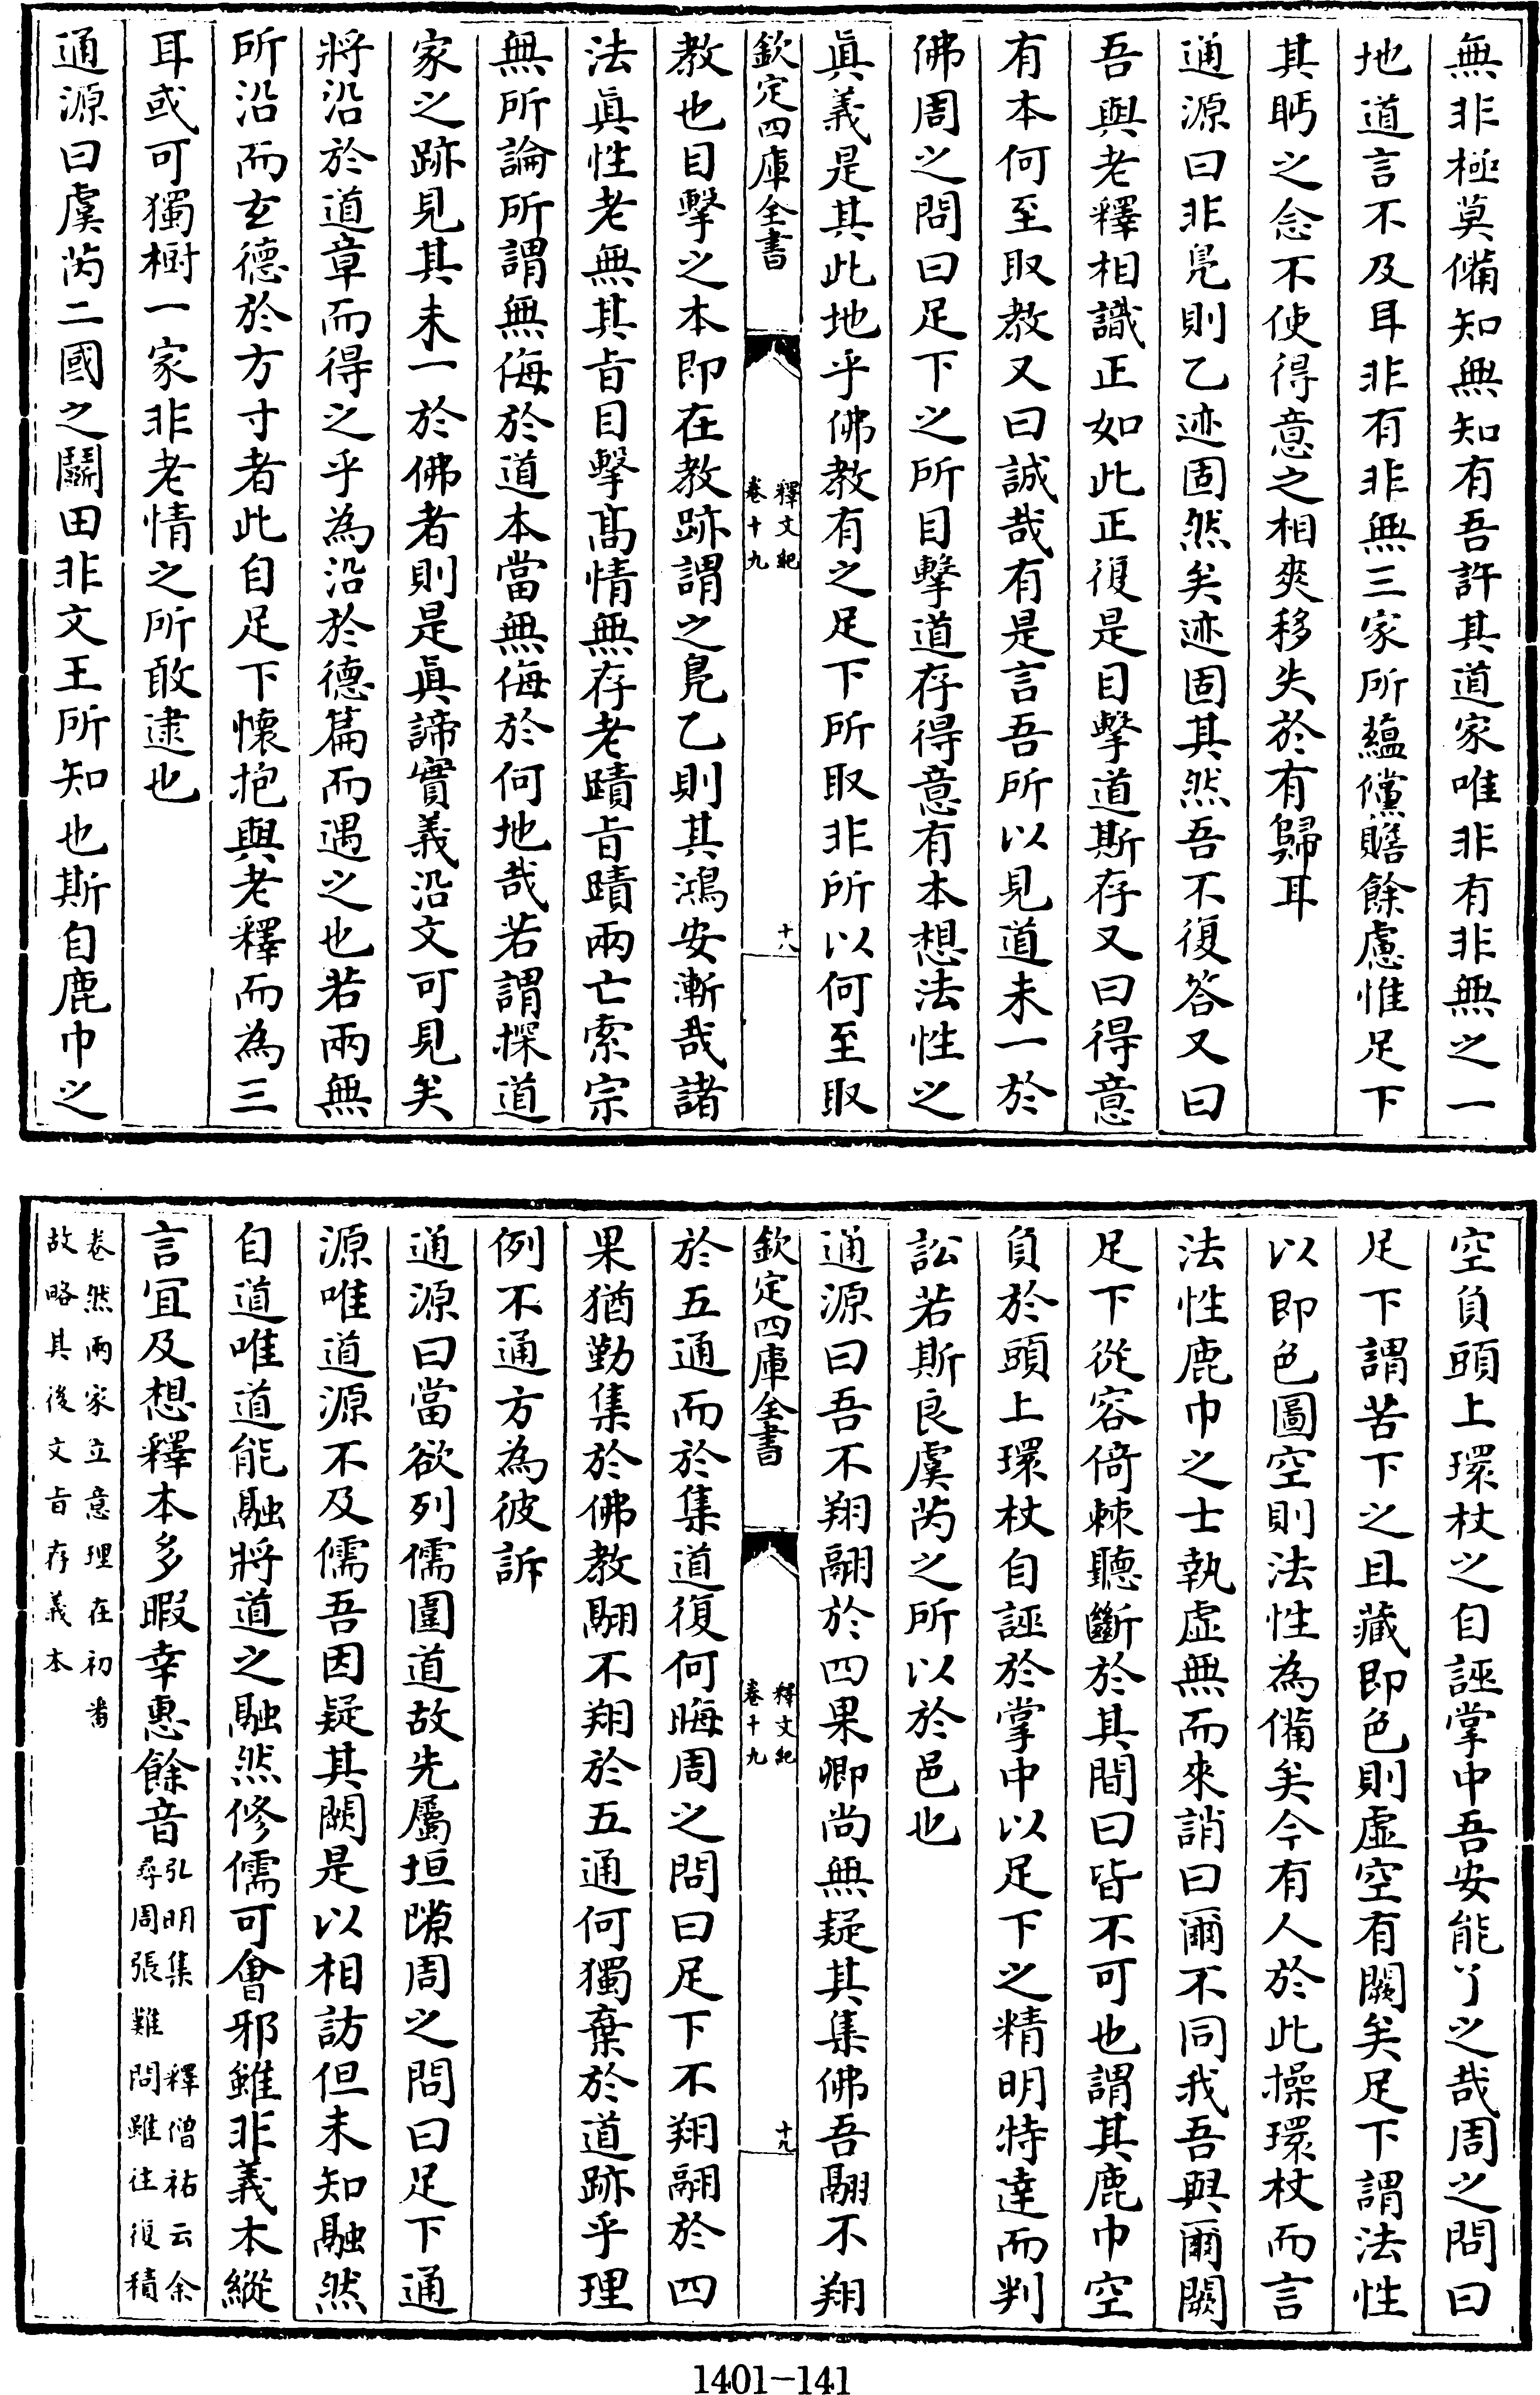 無非極莫備知無知有吾許其道家唯非有非無之一
地道言不及耳非有非無三家所蘊儻贍餘慮惟足下
其眄之念不使得意之相爽移失於有歸耳
通源曰非鳧則乙迹固然矣迹固其然吾不復答又曰
吾與老釋相識正如此正復是目擊道斯存又曰得意
有本何至取教又曰誠哉有是言吾所以見道未一於
佛周之問曰足下之所目擊道存得意有本想法性之
眞義是其此地乎佛教有之足下所取非所以何至取
欽定四庫全書
釋文紀
卷十九
十八
教也目擊之本即在教跡謂之鳧乙則其鴻安漸哉諸
法眞性老無其旨目擊髙情無存老蹟旨蹟兩亡索宗
無所論所謂無侮於道本當無侮於何地哉若謂探道
家之跡見其未一於佛者則是眞諦實義沿文可見矣
將沿於道章而得之乎為沿於德篇而遇之也若兩無
所沿而玄德於方寸者此自足下懷抱與老釋而為三
耳或可獨樹一家非老情之所敢逮也
通源曰虞芮二國之鬭田非文王所知也斯自鹿巾之
空負頭上環杖之自誣掌中吾安能了之哉周之問曰
足下謂苦下之且藏即色則虛空有闕矣足下謂法性
以即色圖空則法性為備矣今有人於此操環杖而言
法性鹿巾之士執虛無而來誚曰爾不同我吾與爾闕
足下從容倚棘聽斷於其間曰皆不可也謂其鹿巾空
負於頭上環杖自誣於掌中以足下之精明特達而判
訟若斯良虞芮之所以於邑也
通源曰吾不翔翮於四果卿尚無疑其集佛吾翮不翔
欽定四庫全書
釋文紀
卷十九
十九
於五通而於集道復何晦周之問曰足下不翔翮於四
果猶勤集於佛教翮不翔於五通何獨棄於道跡乎理
例不通方為彼訴
通源曰當欲列儒圍道故先屬垣隙周之問曰足下通
源唯道源不及儒吾因疑其闕是以相訪但未知融然
自道唯道能融將道之融然修儒可會邪雖非義本縱
言宜及想釋本多暇幸惠餘音弘明集 釋僧祐云余
尋周張難問雖往復積
卷然兩家立意理在初番
故略其後文旨存義本
1401-141